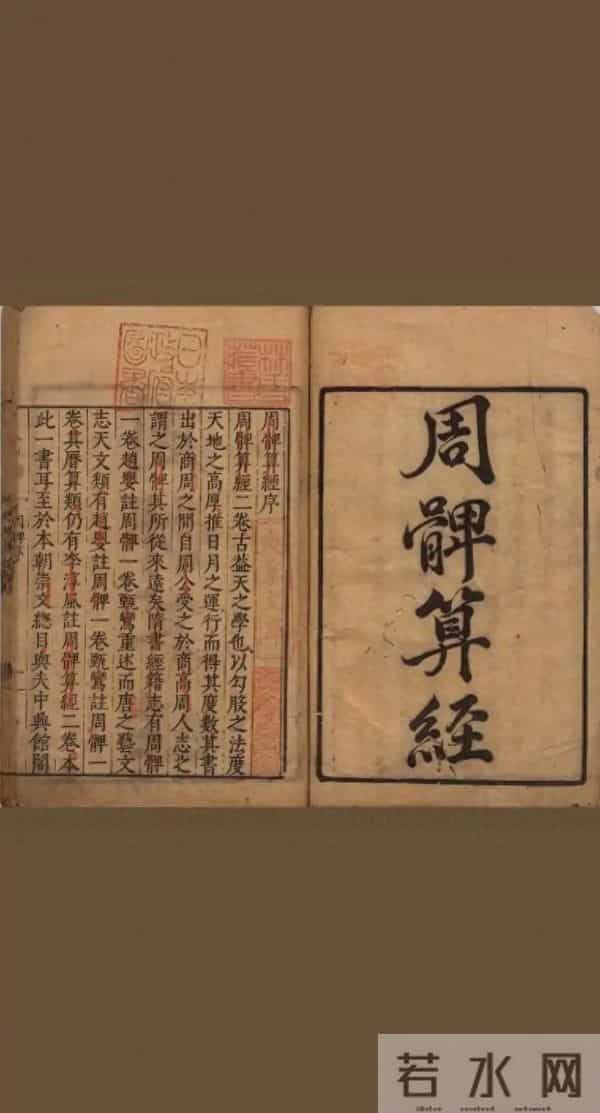 周髀算経
林氏
藏書
日本
政府
圖書
周髀算經序
周髀算經二卷古葢天之學也以勾股之法度
天地之高厚推日月之運行而得其度數其書
出於商周之間自周公受之於商高周人志之
謂之周髀其所從來遠矣隋書經籍志有周髀
一卷趙嬰註周髀一卷甄鸞重述而唐之藝文
志天文類有趙嬰註周髀一卷甄鸞註周髀一
卷其曆算類仍有李淳風註周髀算經二卷本
此一書耳至於本朝崇文總目與夫中興館閣
若水网